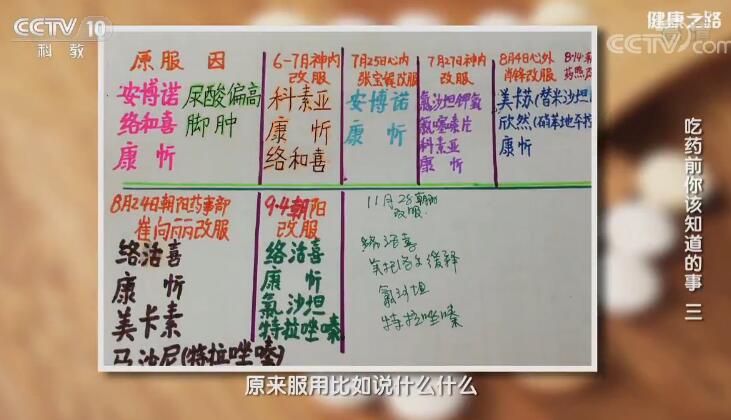 CCTV 10
科教
健康之路
CCTV.com
吃药前你该知道的事 三
原服 因
安博诺 尿酸偏高
络和喜 脚肿
康忻
6-7月神内
改服
科素亚
康忻
络和喜
7月25日心内
张宝候改服
安博诺
康忻
7月27日神内
改服
氯沙坦钾氢
氯噻嗪片
科素亚
康忻
8月4日心外
肖锋改服
美卡苏(替米沙坦
欣然(硝苯地平控
康忻
8·14
8月24日朝阳药事部
崔向丽改服
络活喜
康忻
美卡素
马沙尼(特拉唑嗪)
9·4朝阳
改服
络活喜
康忻
氯沙坦
特拉唑嗪
11月28朝阳
改服.
络活喜
美托洛尔缓释
氯沙坦
特拉唑嗪
原来服用比如说什么什么